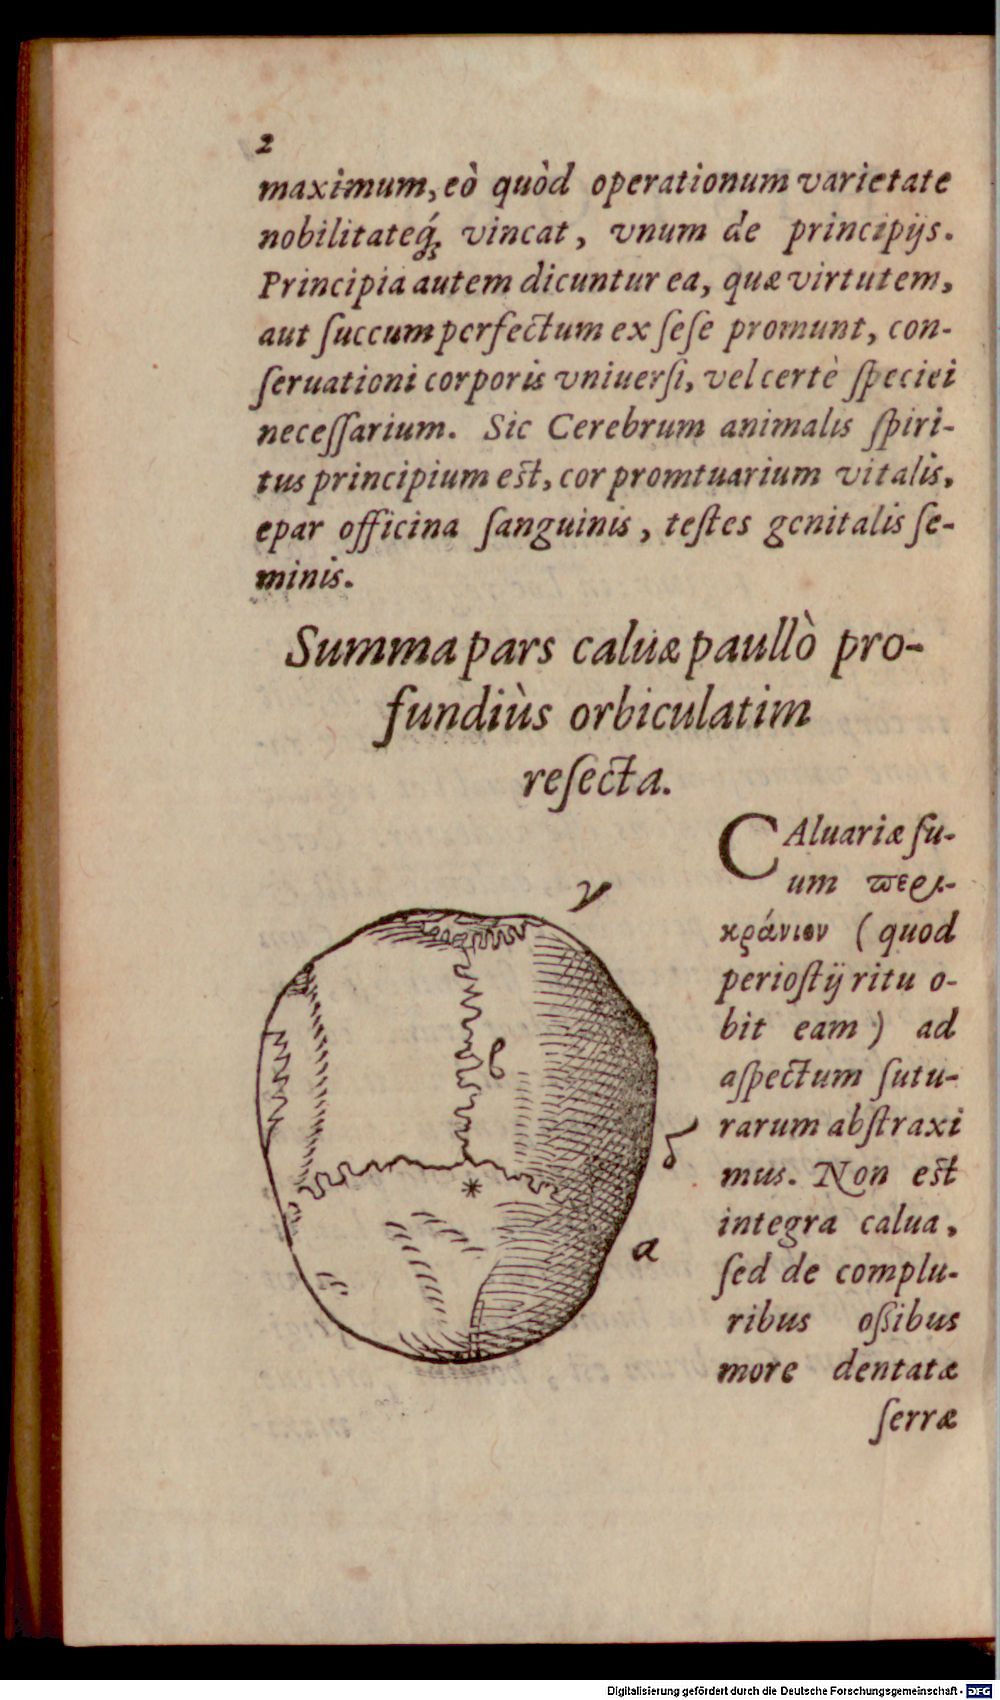 2
maximum, eò quòd operationum varietate
nobilitateq́; vincat, vnum de principijs.
Principia autem dicuntur ea, quæ virtutem,
aut ſuccum perfectum ex ſeſe promunt, con-
ſeruationi corporis vniuerſi, vel certè ſpeciei
neceſſarium. Sic Cerebrum animalis ſpiri-
tus principium eſt, cor promtuarium vitalis,
epar officina ſanguinis, teſtes genitalis ſe-
minis.
Summa pars caluæ paullò pro-
fundiùs orbiculatim
reſecta.
CAluariæ ſu-
um ϖερι-
κράνιον (quod
perioſtij ritu o-
bit eam) ad
aſpectum ſutu-
rarum abſtraxi
mus. Non eſt
integra calua,
ſed de complu-
ribus oſſibus
more dentatæ
ſerræ
γ
β
δ
*
α
Digitalisierung gefördert durch die Deutsche Forschungsgemeinschaft - DFG